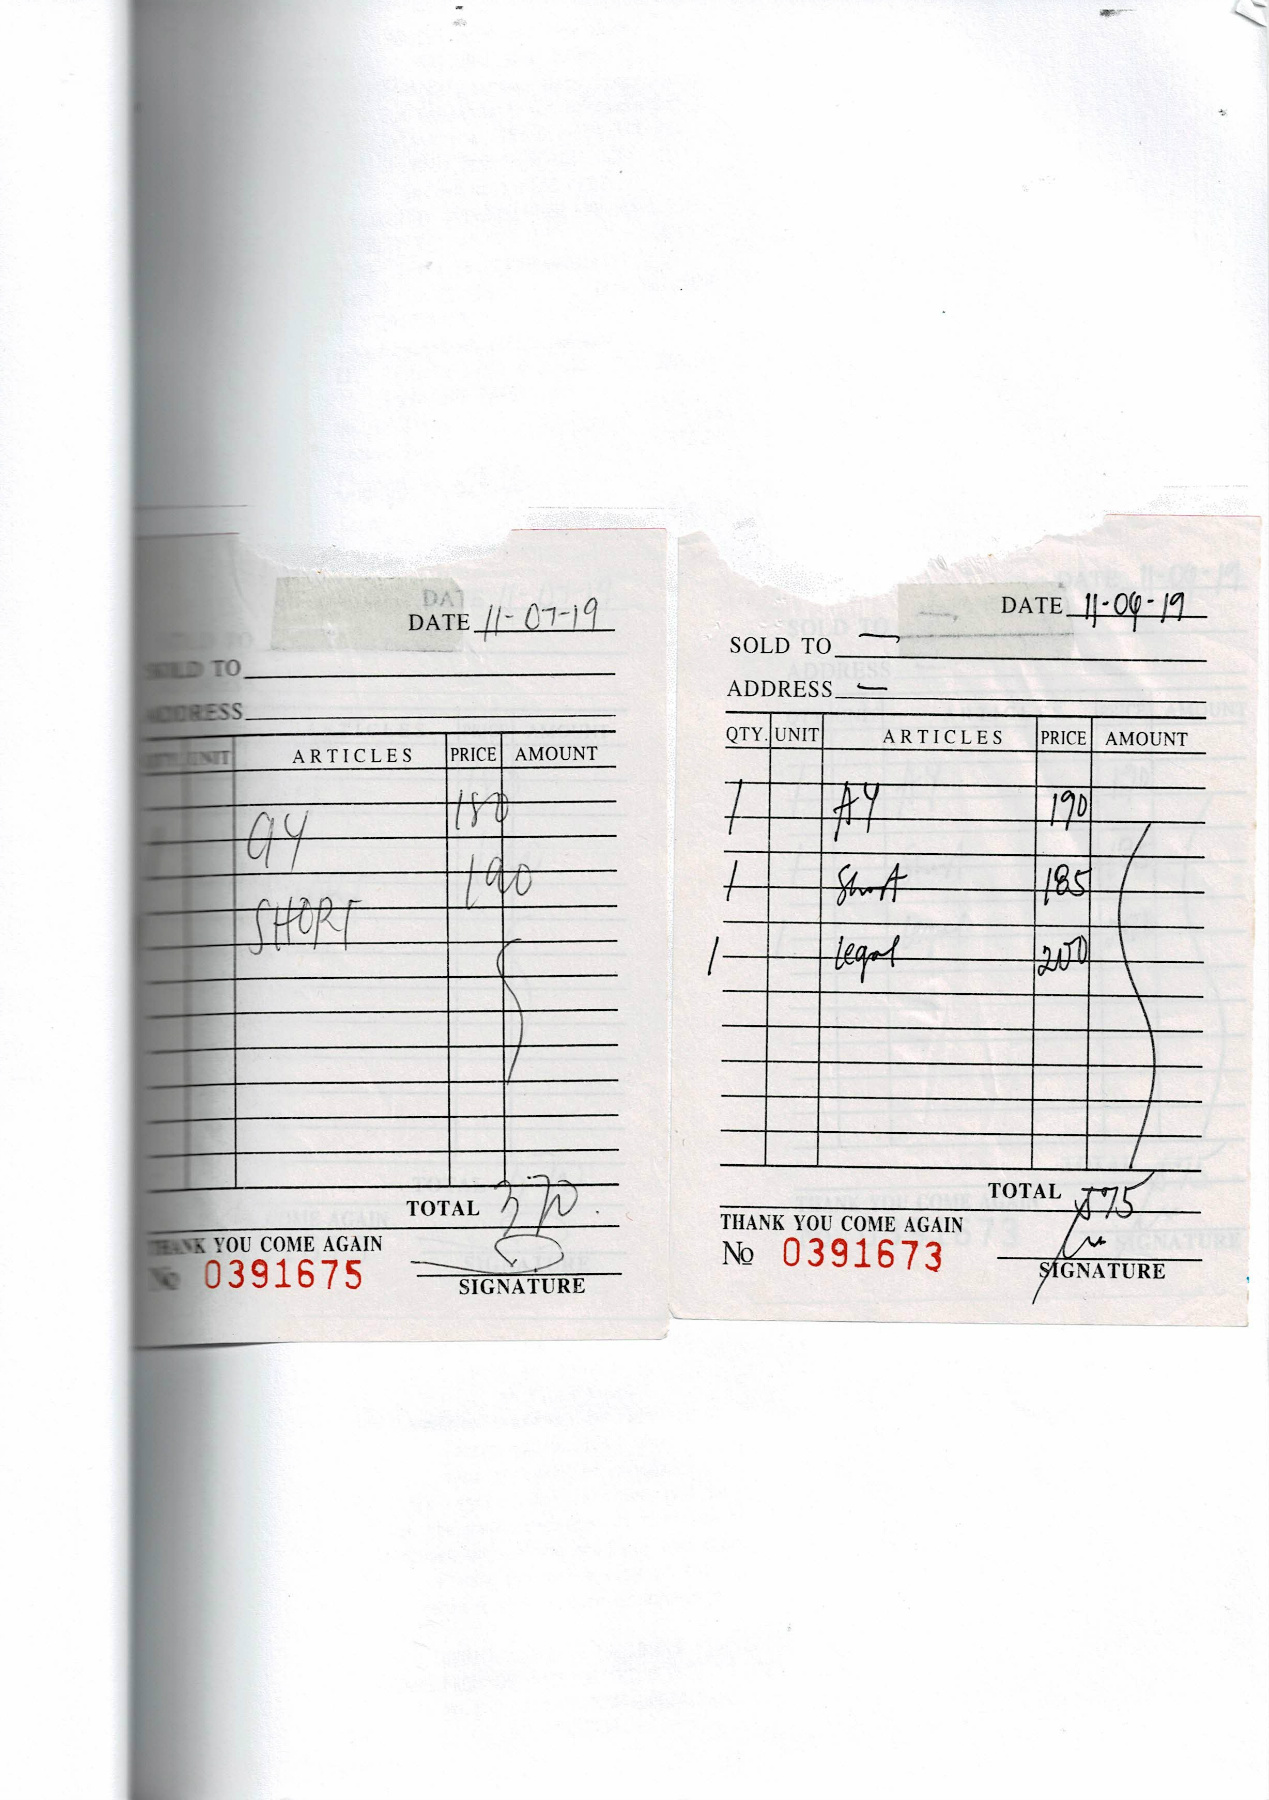 DATE 11-07-19
SOLD TO
ADDRESS
UNIT ARTICLES PRICE AMOUNT
180
A4
190
SHORT
TOTAL 370
THANK YOU COME AGAIN
No 0391675
SIGNATURE
DATE 11-04-19
SOLD TO —
ADDRESS —
QTY. UNIT ARTICLES PRICE AMOUNT
1 A4 190
1 Short 185
1 legal 200
TOTAL 575
THANK YOU COME AGAIN
No 0391673
SIGNATURE